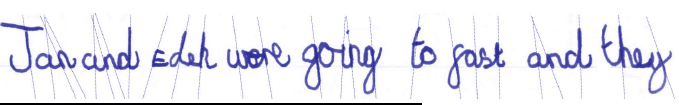 Jan and Edeh were going to fast and they